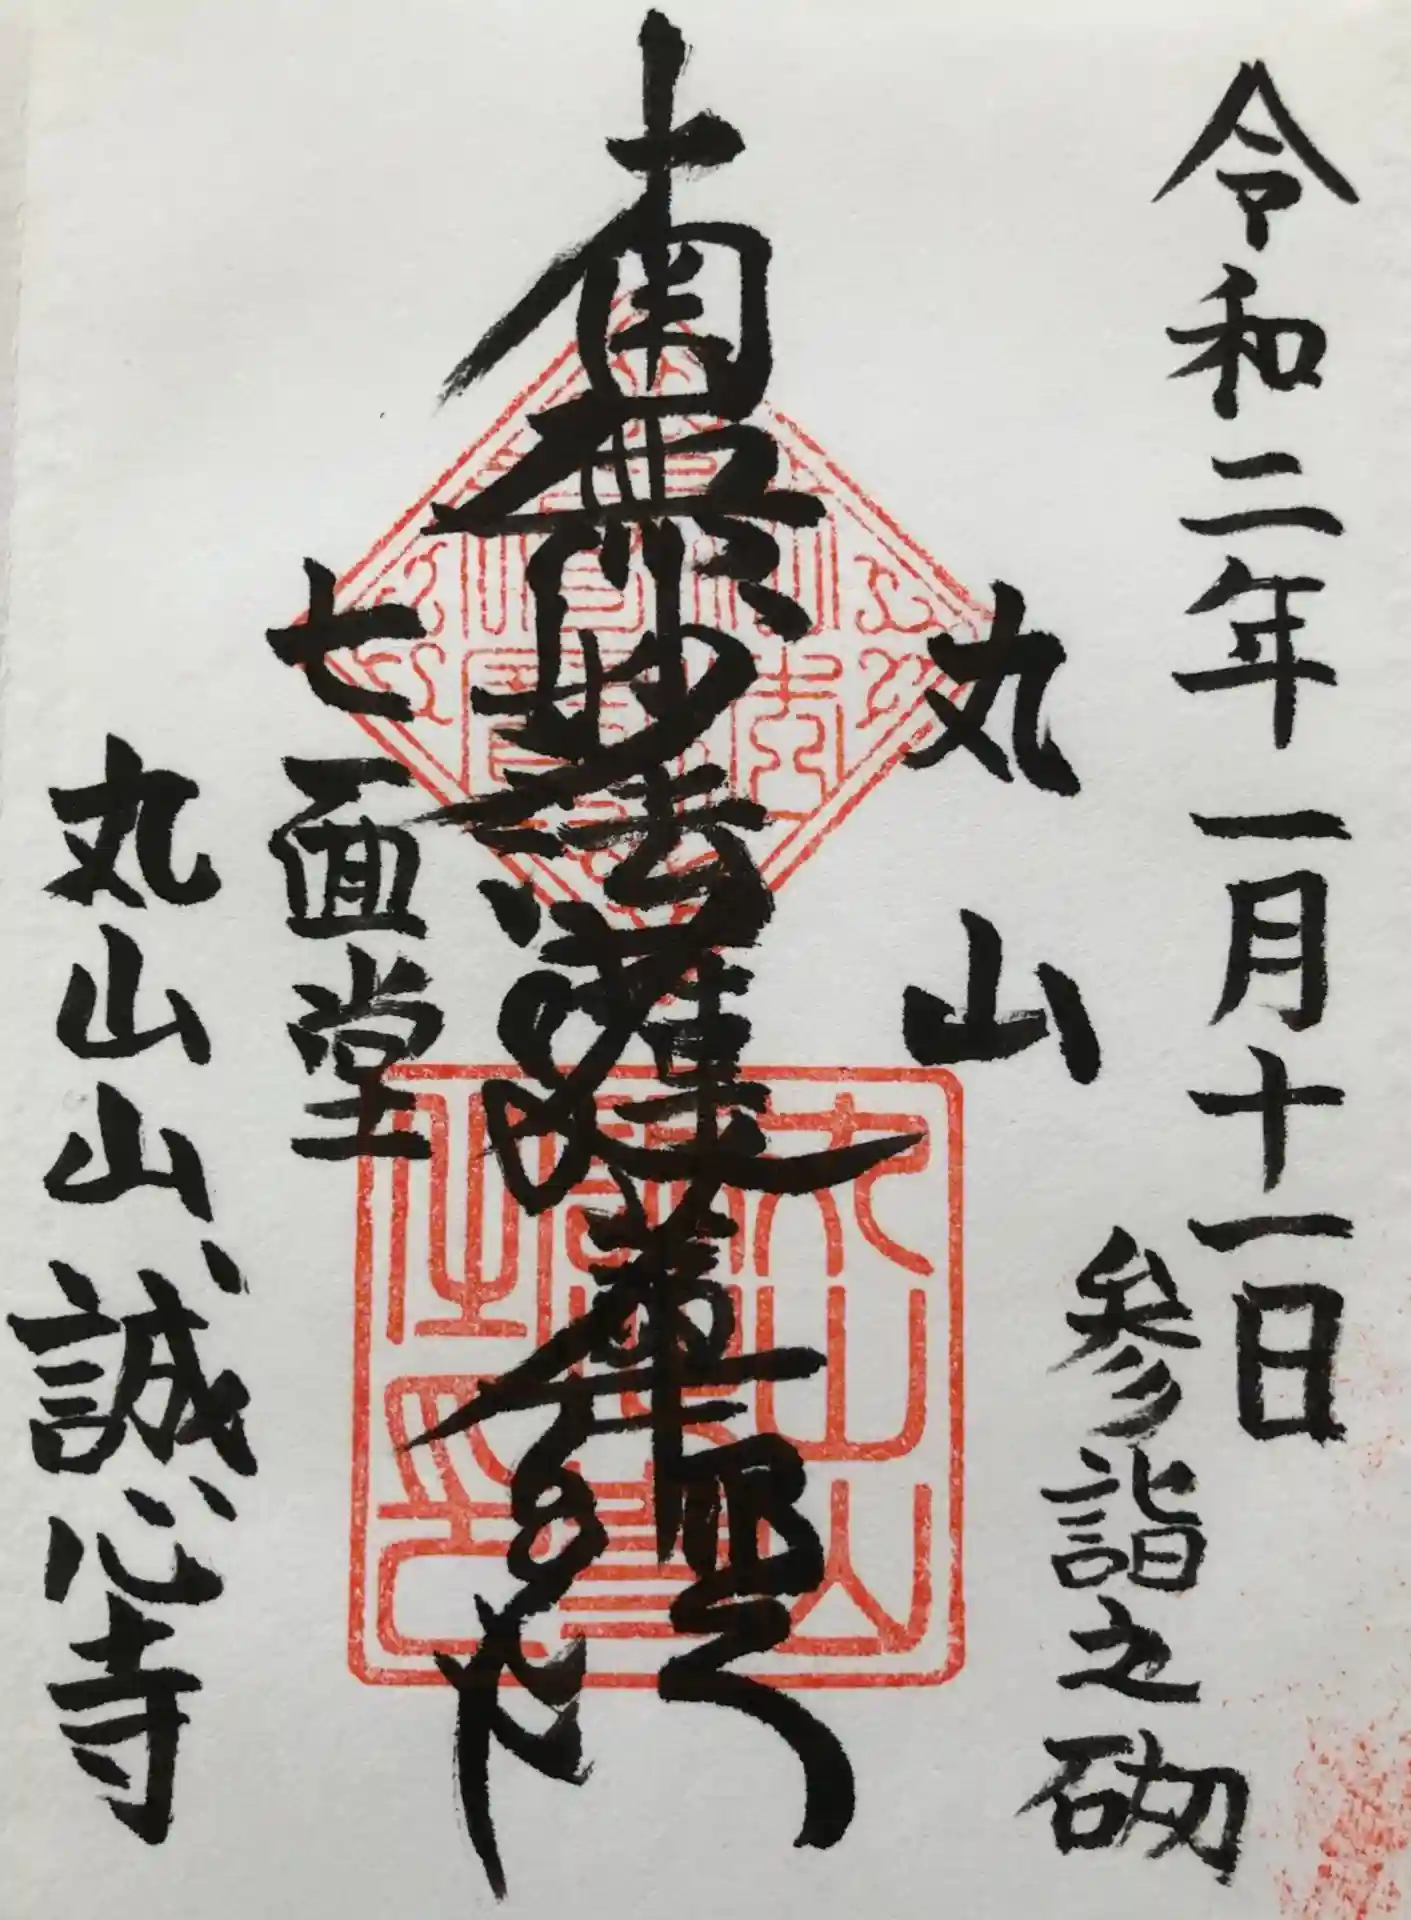 令和二年一月十一日
参詣之砌
丸山
南無妙法蓮華經
七面堂
丸山山誠心寺